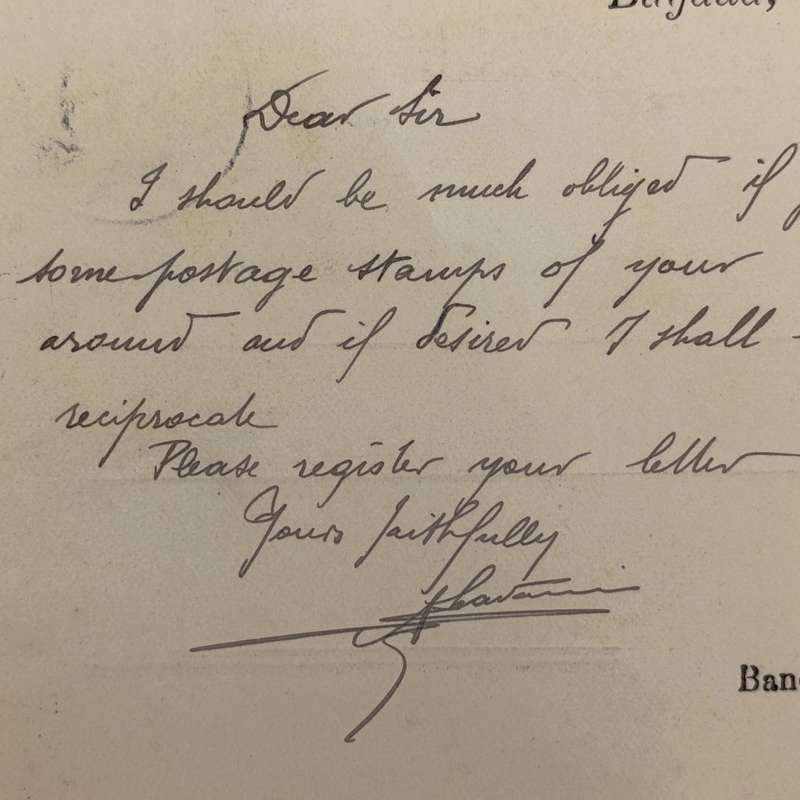 Dear Sir
I should be much obliged if
some postage stamps of your
around and if desired I shall
reciprocate
Please register your letter
Yours faithfully